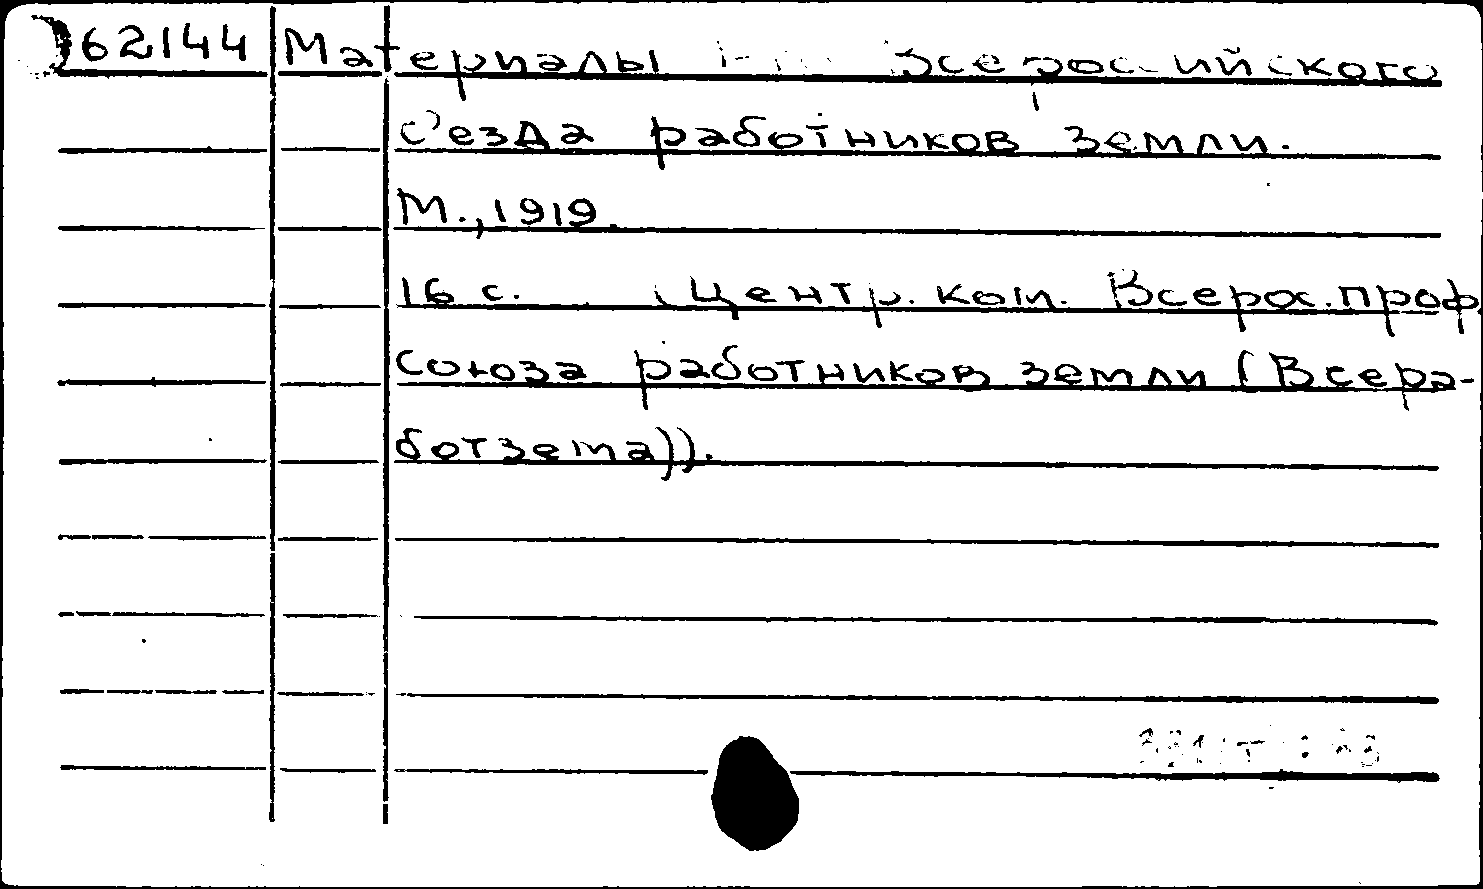 62144 Материалы Всероссийского
с'езда работников земли.
М., 1919.
16 с. (Центр. ком. Всерос. проф.
союза работников земли (Всера-
ботзема)).